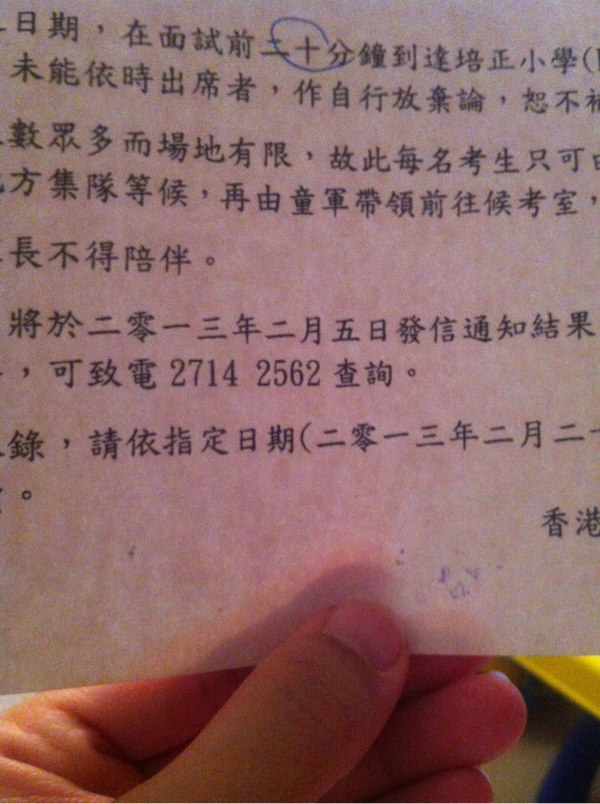 日期，在面試前二十分鐘到達培正小學(
未能依時出席者，作自行放棄論，恕不補
數眾多而場地有限，故此每名考生只可由
方集隊等候，再由童軍帶領前往候考室，
長不得陪伴。
將於二零一三年二月五日發信通知結果
，可致電 2714 2562 查詢。
錄，請依指定日期(二零一三年二月二十
。
香港